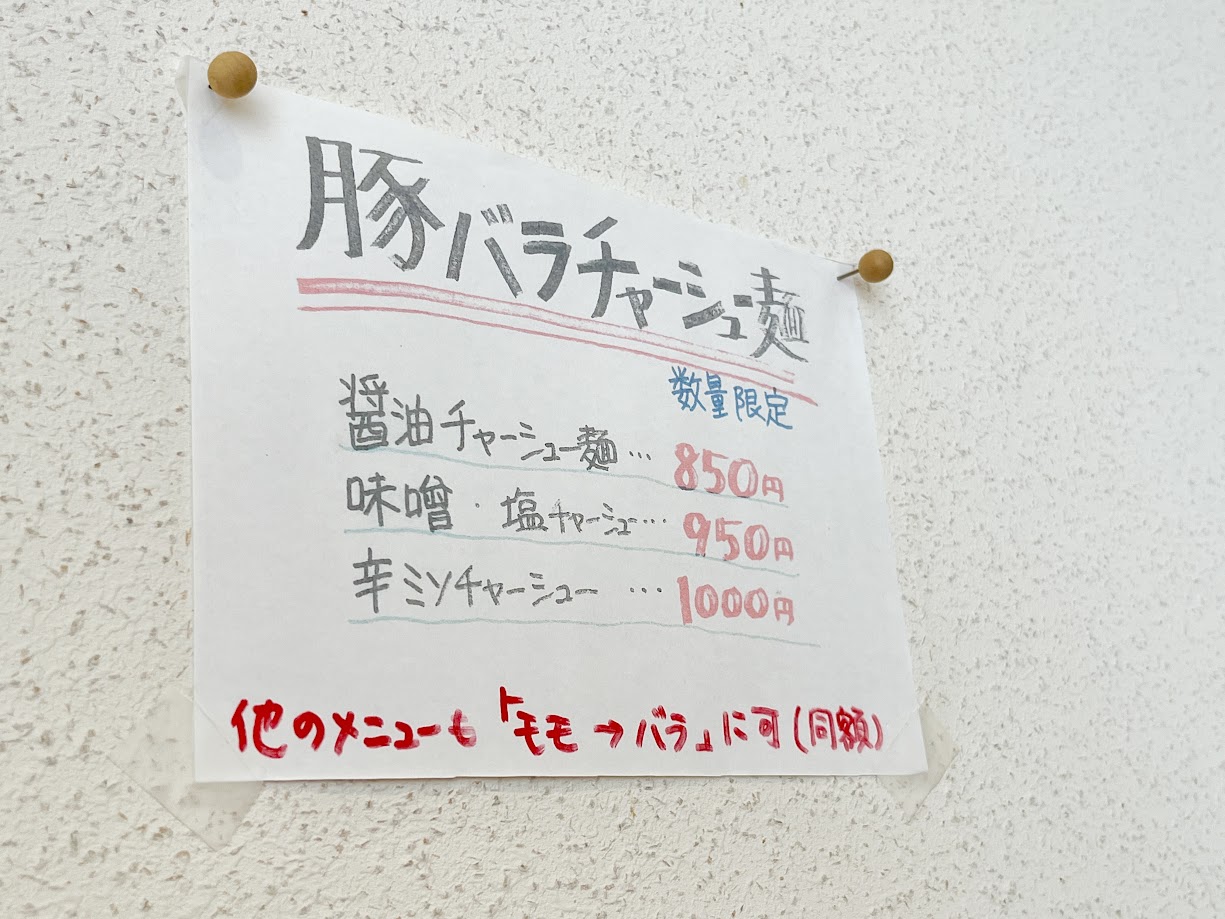 豚バラチャーシュー麺
数量限定
醤油チャーシュー麺… 850円
味噌・塩チャーシュー… 950円
辛ミソチャーシュー … 1000円
他のメニューも「モモ→バラ」に可(同額)